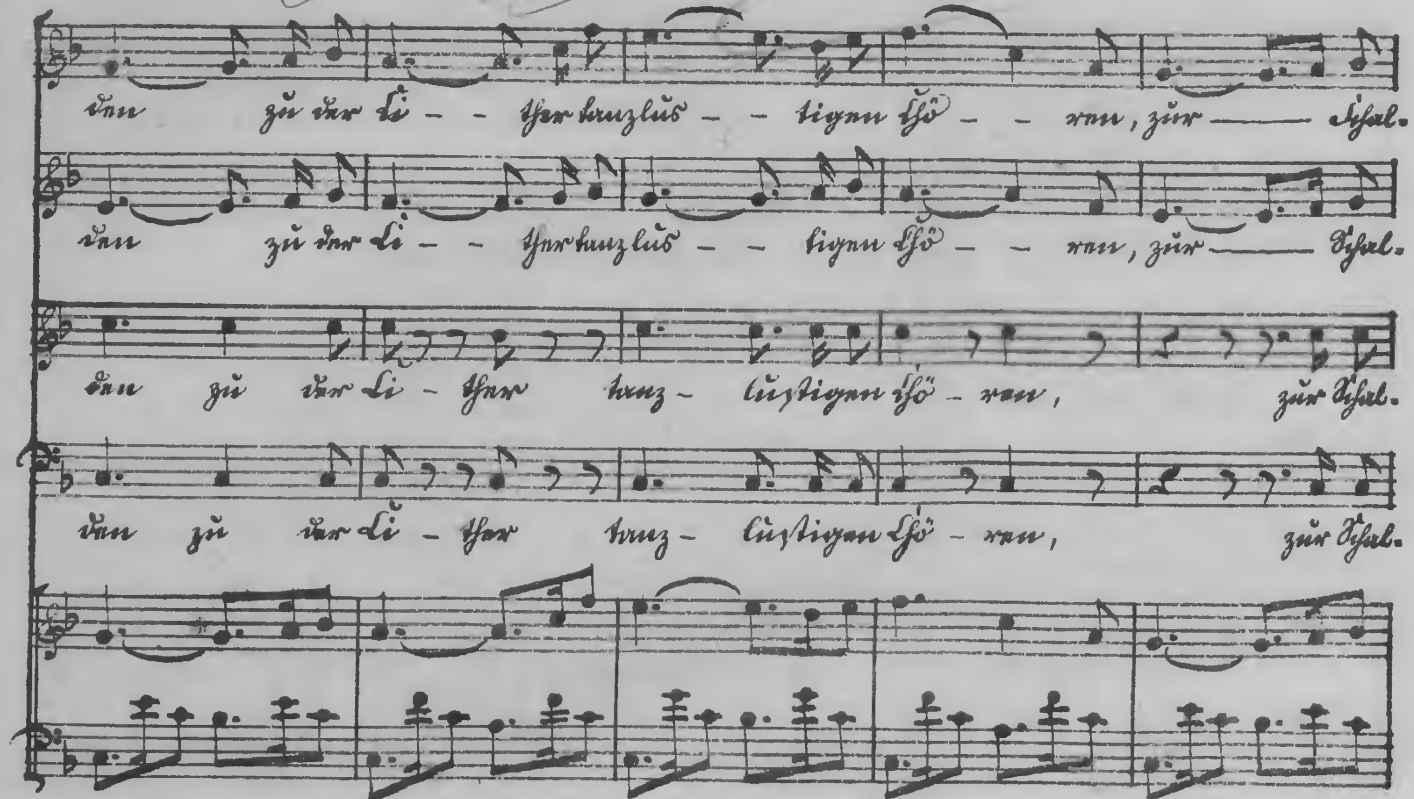 den zu der Ci - - ther tanzlus - - tigen Chö - - ren, zur — Schal-
den zu der Ci - - ther tanzlus - - tigen Chö - - ren, zur — Schal-
den zu der Ci - ther tanz - lustigen Chö - ren, zur Schal-
den zu der Ci - ther tanz - lustigen Chö - ren, zur Schal-